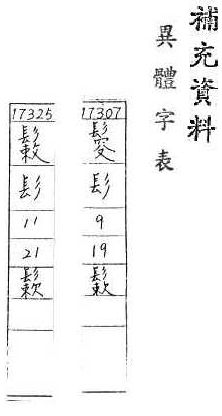 補充資料
異體字表
17307
髟
9
19
17325
髟
11
21